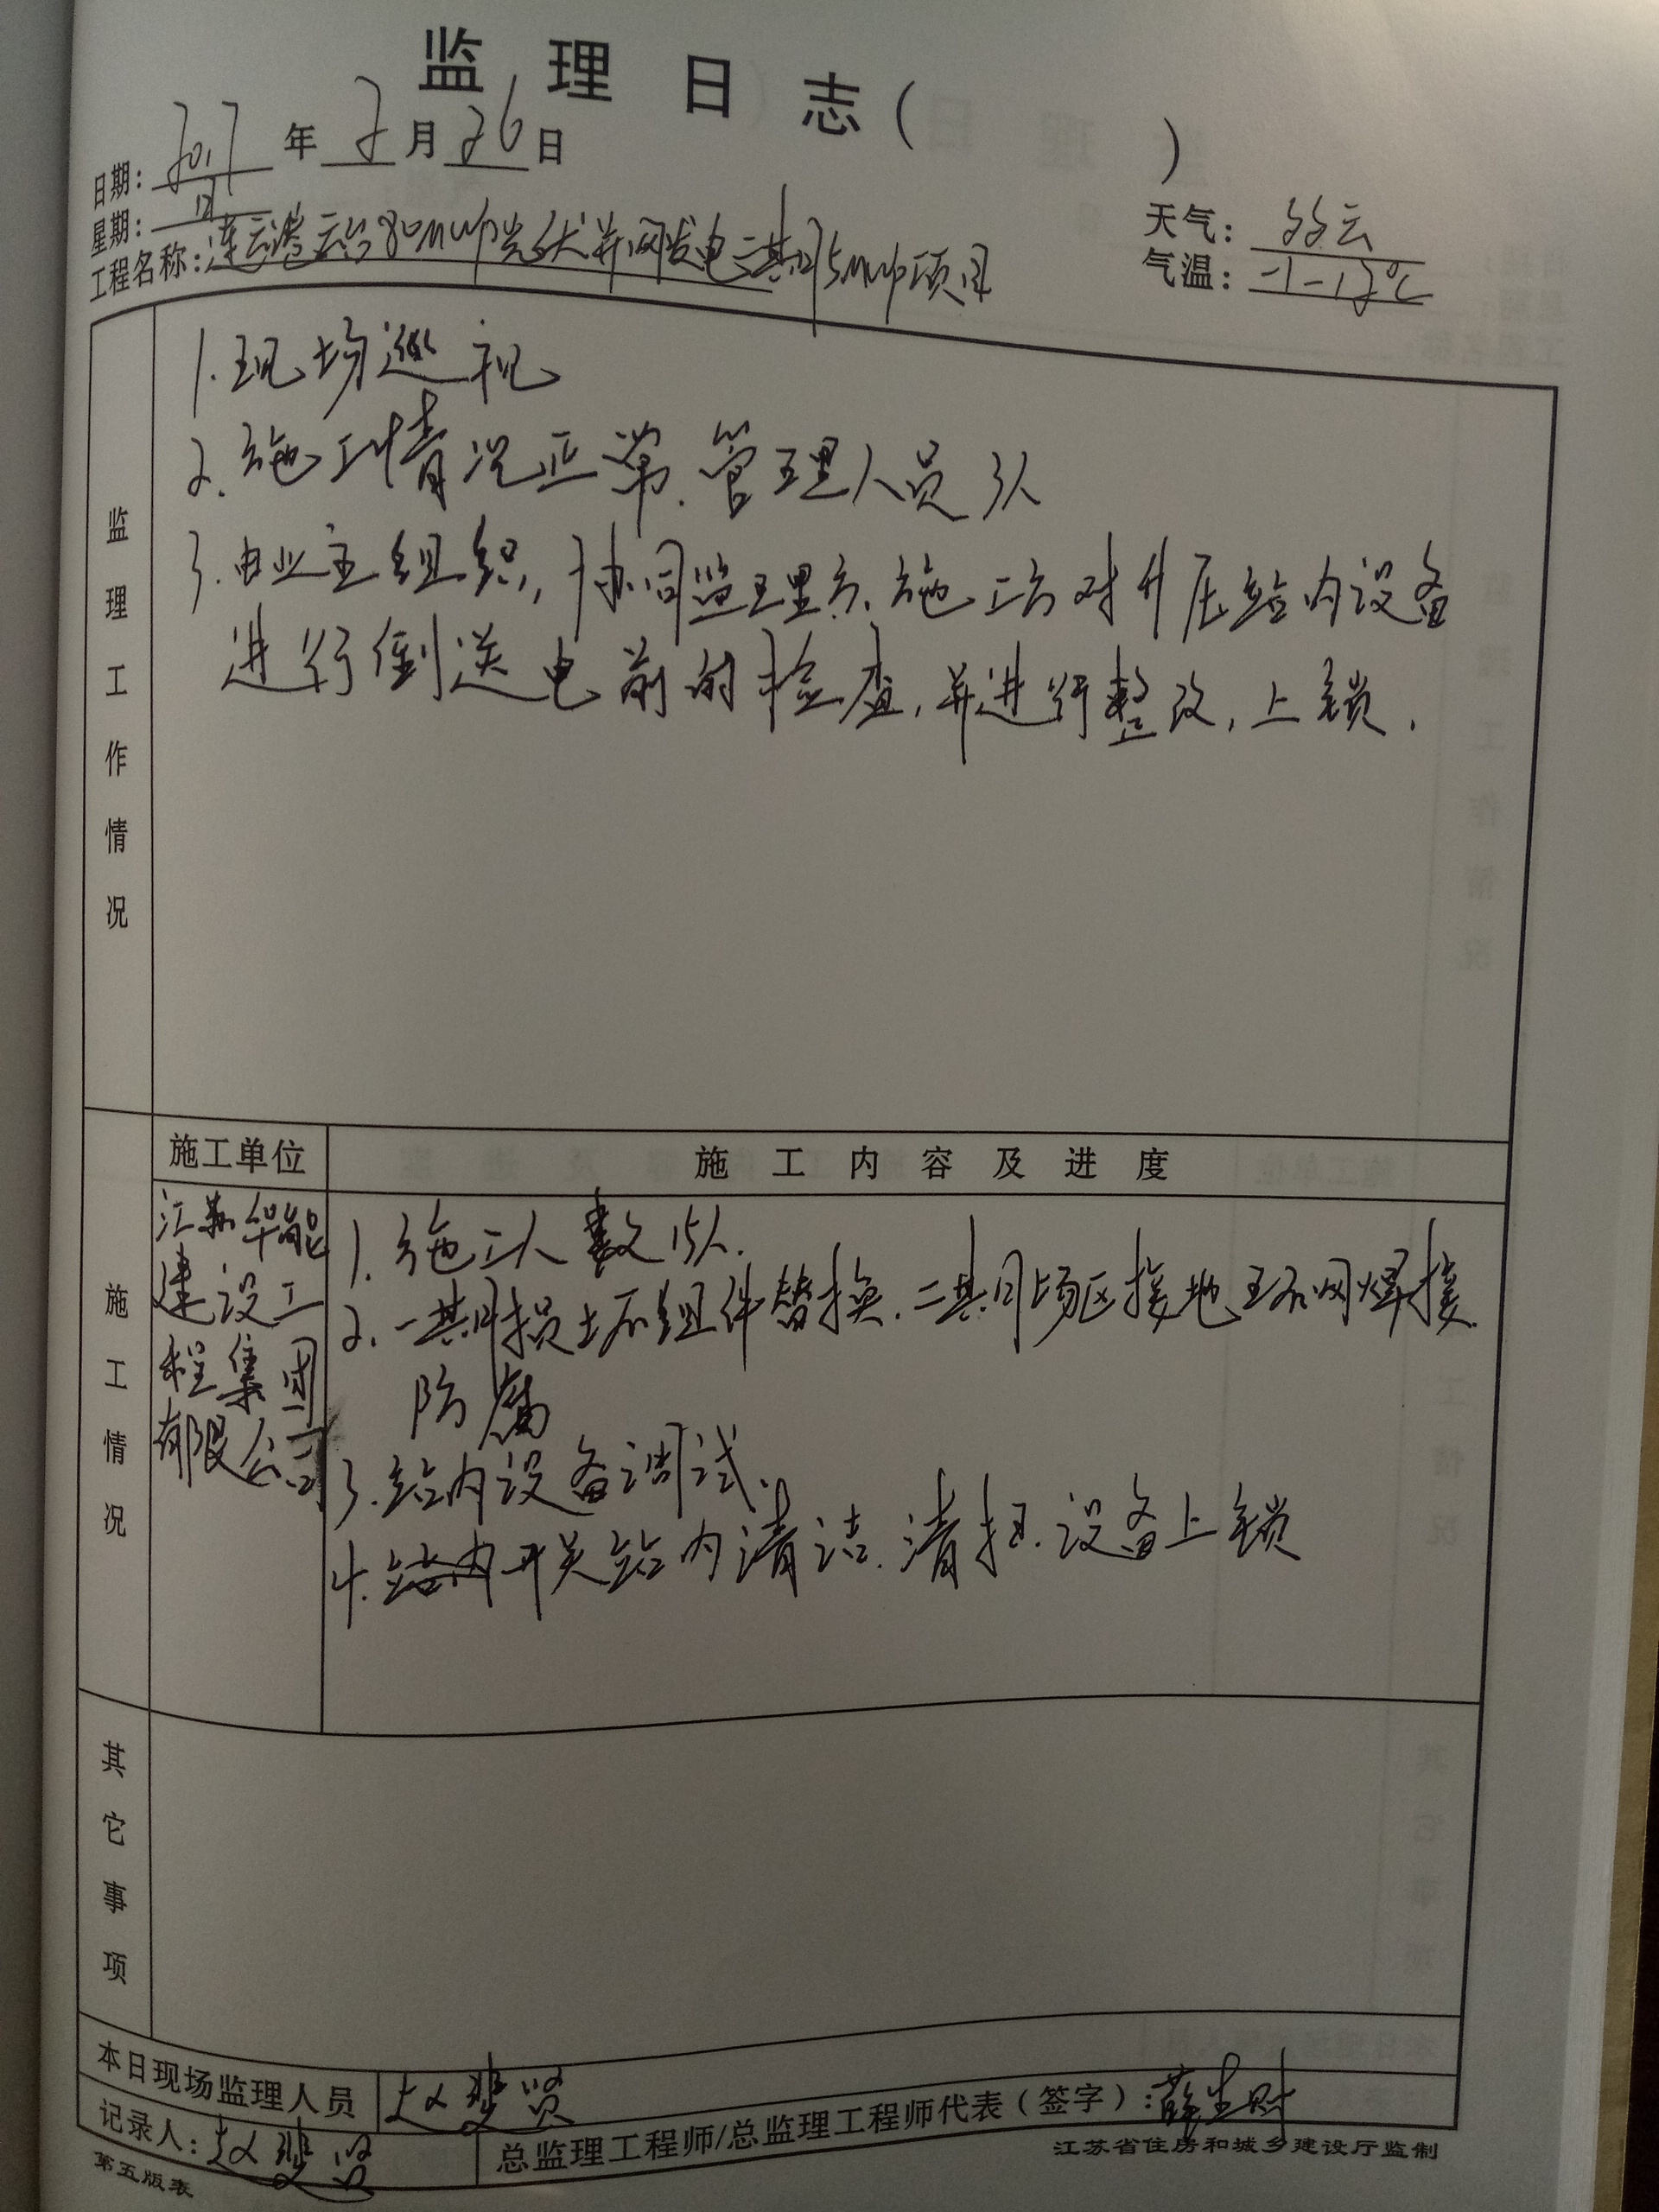 监理日志( )
日期: 2017 年 2 月 26 日
星期: 日
天气: 多云
工程名称: 连云港云台80MWp光伏并网发电二期25MWp项目
气温: -1-12℃
监理工作情况
1.现场巡视
2.施工情况正常.管理人员3人
3.由业主组织,协同监理方、施工方对升压站内设备
进行倒送电前的检查,并进行整改,上锁.
施工单位
施工内容及进度
施工情况
江苏华能
建设工
程集团
有限公司
1.施工人数15人.
2.一期损坏组件替换.二期场区接地环网焊接.
防腐
3.站内设备调试.
4.站内开关站内清洁.清扫.设备上锁
其它事项
本日现场监理人员 赵斐贤
记录人: 赵斐贤
总监理工程师/总监理工程师代表(签字): 薛生财
第五版表
江苏省住房和城乡建设厅监制